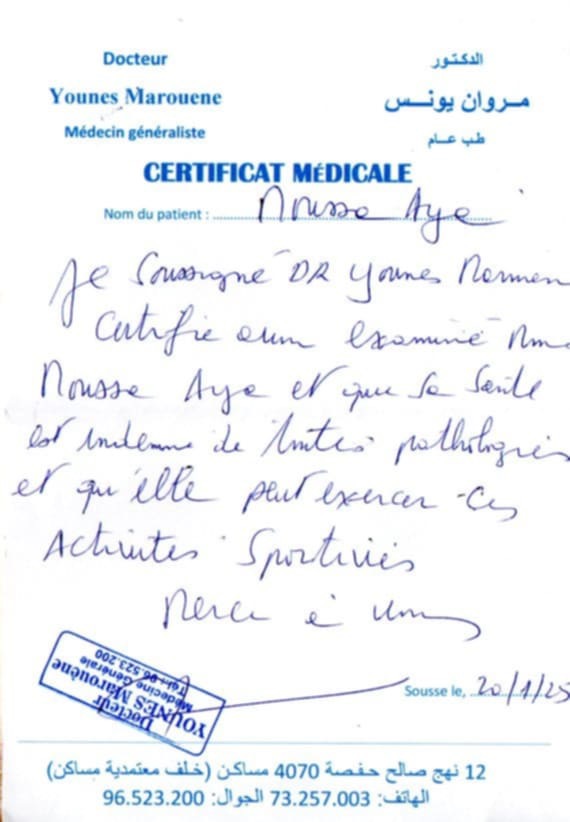 Docteur
Younes Marouene
Médecin généraliste
الدكتور
مروان يونس
طب عام
CERTIFICAT MÉDICALE
Nom du patient : Mousse Aye
Je soussigné DR Younes
Certifie examiné
Mousse Aye et que sa Santé
est indemne de toutes pathologies
et qu'elle peut exercer ces
Activités Sportives
Merci à vous
Docteur
YOUNES Marouène
Médecine Générale
Tél : 96.523.200
Sousse le, 20/1/25
12 نهج صالح حفصة 4070 مساكن (خلف معتمدية مساكن)
الهاتف: 73.257.003 الجوال: 96.523.200